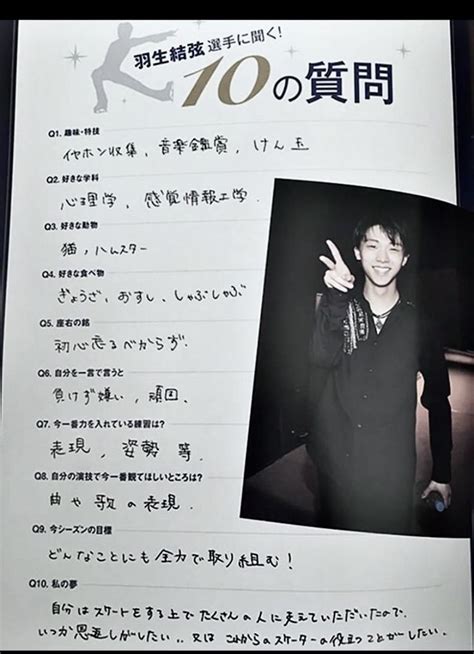 羽生結弦選手に聞く!
10の質問
Q1. 趣味・特技
イヤホン収集, 音楽鑑賞, けん玉
Q2. 好きな学科
心理学, 感覚情報工学.
Q3. 好きな動物
猫, ハムスター
Q4. 好きな食べ物
ぎょうざ, おすし, しゃぶしゃぶ
Q5. 座右の銘
初心忘るべからず.
Q6. 自分を一言で言うと
負けず嫌い, 頑固.
Q7. 今一番力を入れている練習は?
表現, 姿勢 等.
Q8. 自分の演技で今一番観てほしいところは?
曲や歌の表現.
Q9. 今シーズンの目標
どんなことにも全力で取り組む!
Q10. 私の夢
自分はスケートをする上でたくさんの人に支えていただいたので.
いつか恩返しがしたい.. 又は これからのスケーターの役立つことがしたい.